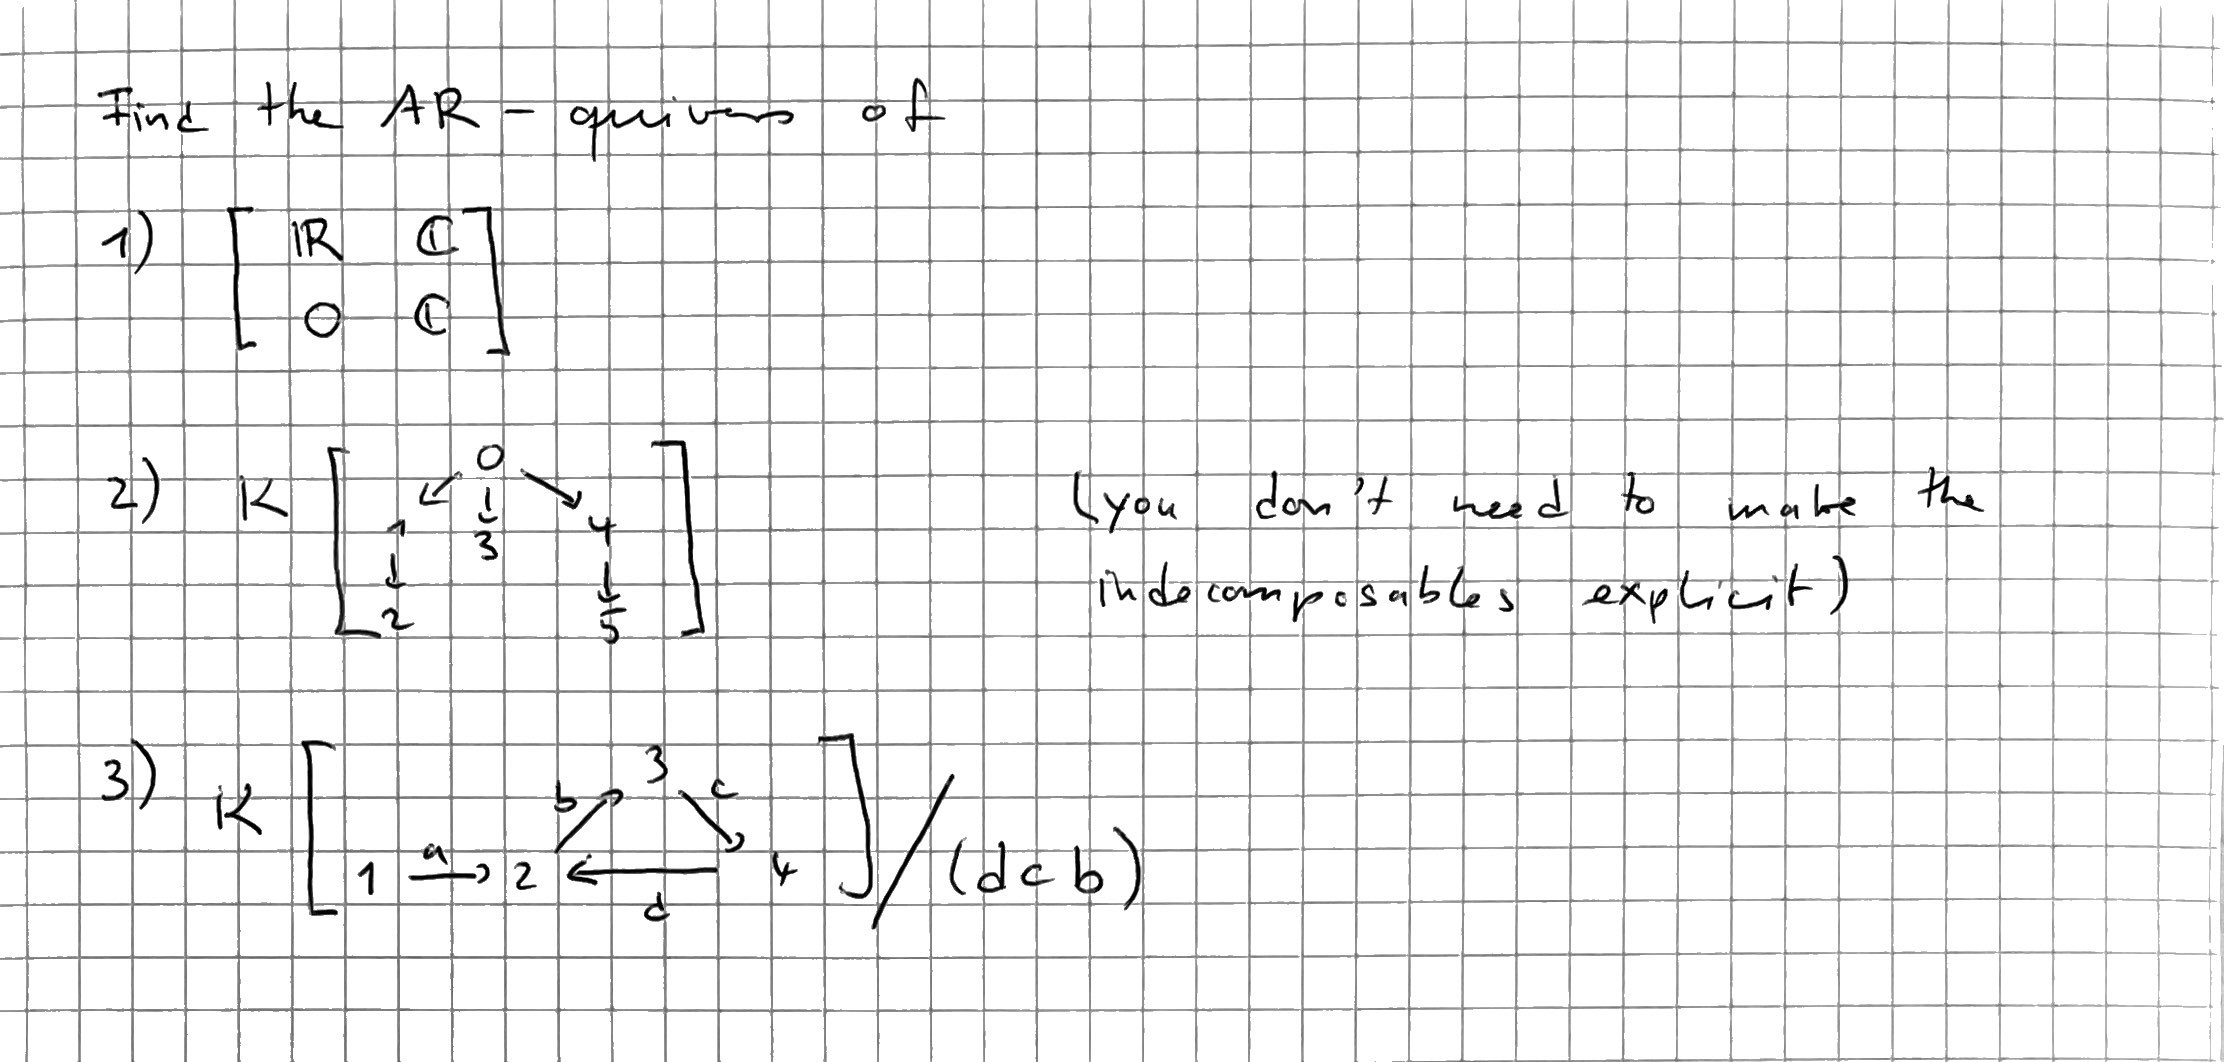 Find the AR-quivers of
1) [ ℝ ℂ
0 ℂ ]
2) K [ 0 (you don't need to make the
1 3 4 indecomposables explicit)
2 5 ]
3) K [ 3
b c
1 a 2 4 ] / (dcb)
d